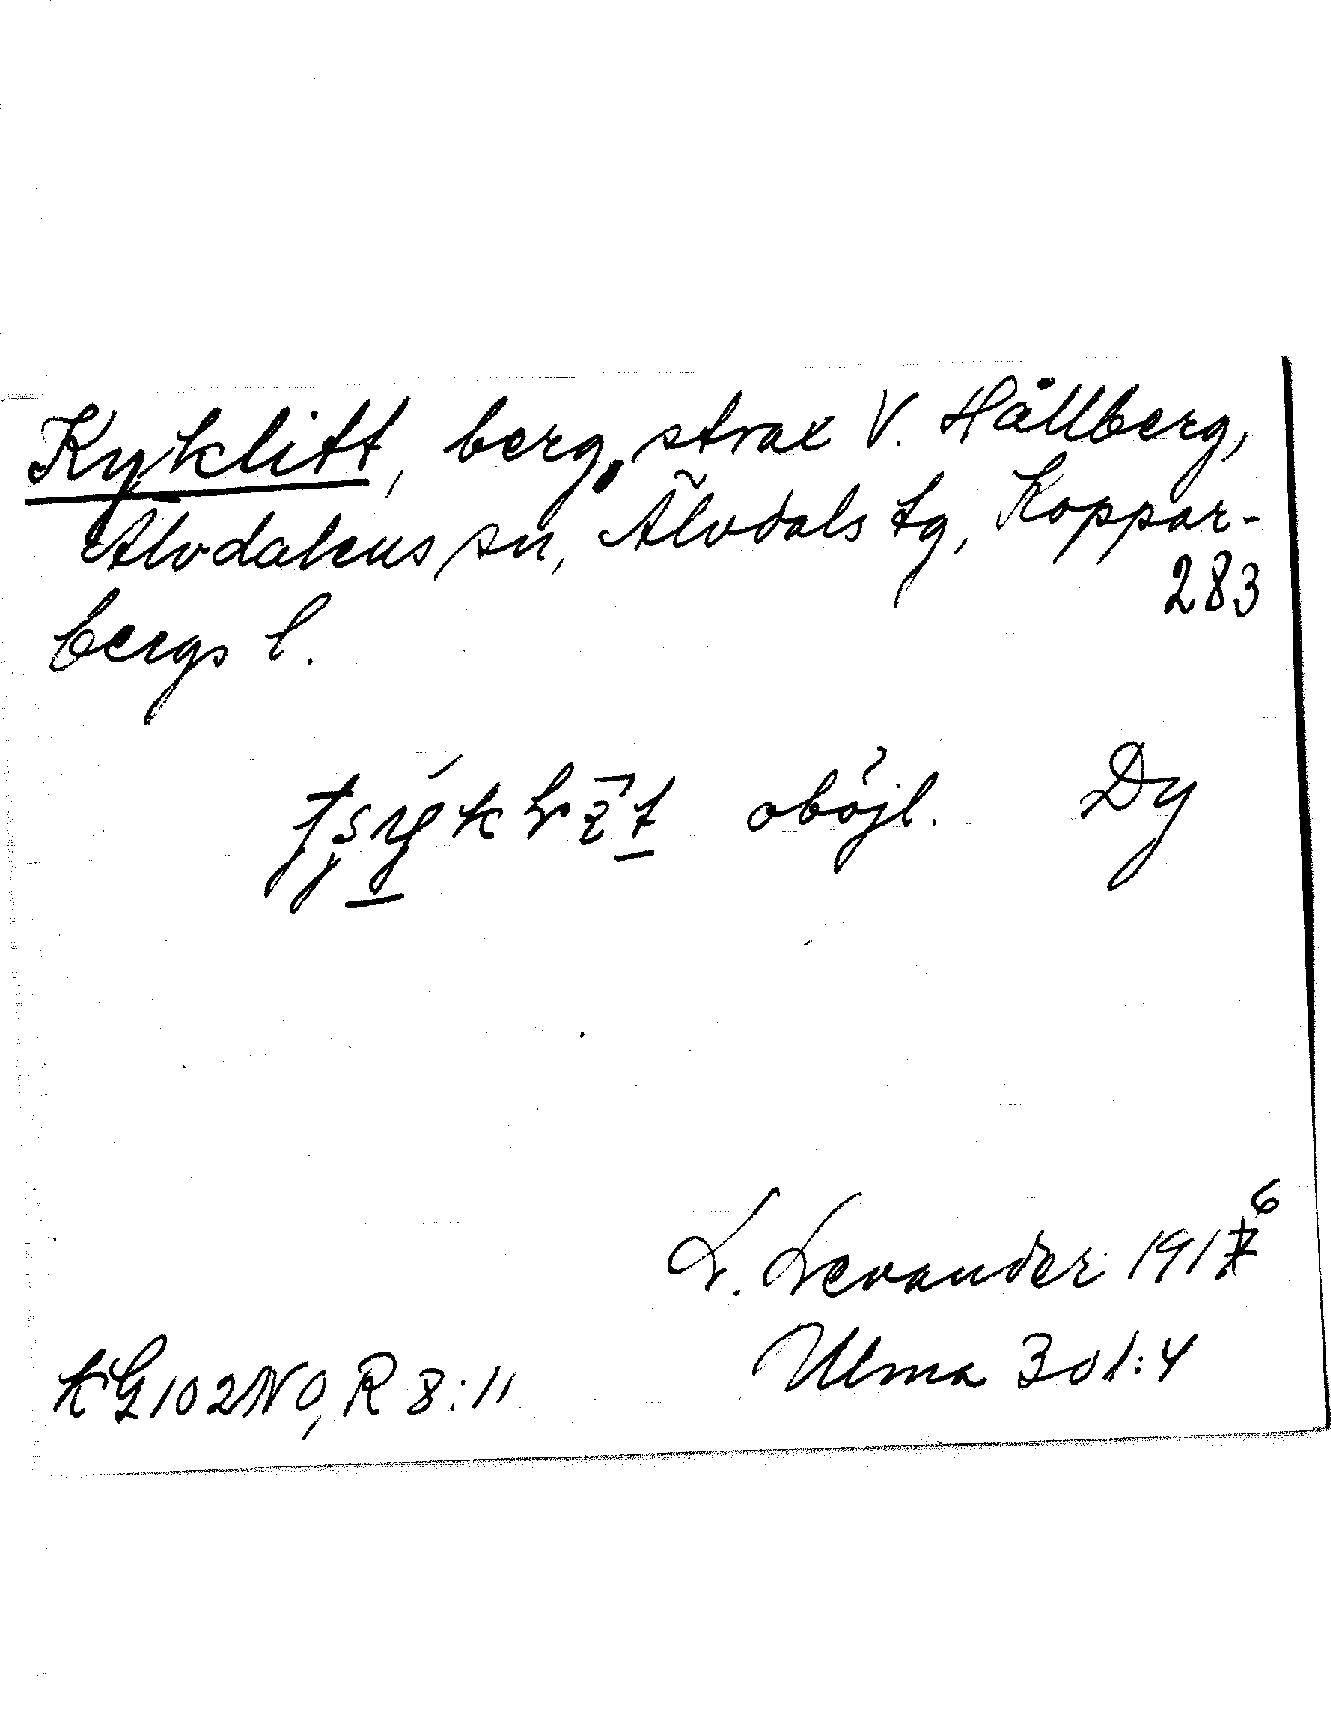 Kyklitt, berg, strax V. Hållberg,
Älvdalens sn, Älvdals tg, Koppar-
283
bergs l.
oböjl. Dy
L. Levander 1916
Ulma 301:4
KG102NO, R 8:11